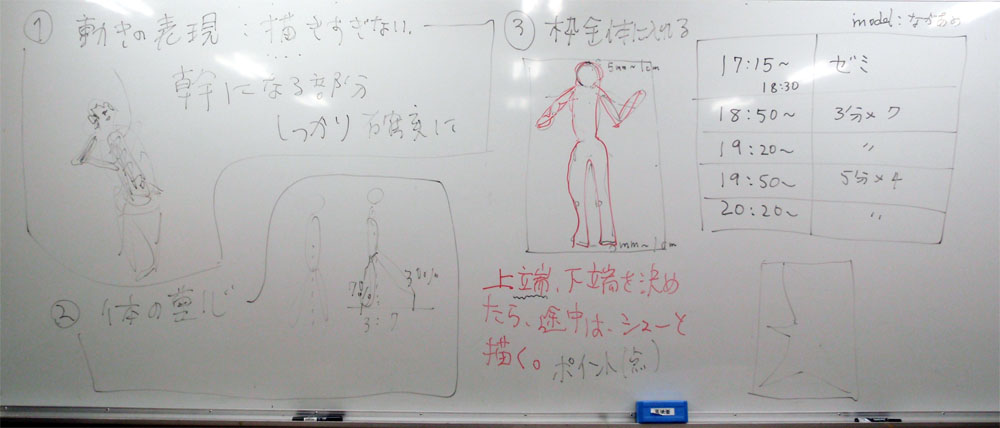 ① 動きの表現：描きすぎない
幹になる部分
しっかり 確実に
② 体の
70%
30%
3 : 7
③ 枠全体に入れる
5mm~1cm
5mm~1cm
上端、下端を決め
たら、途中は、シューと
描く。ポイント(点)
model：ながあめ
17:15~18:30 ゼミ
18:50~ 3分×7
19:20~ 〃
19:50~ 5分×4
20:20~ 〃